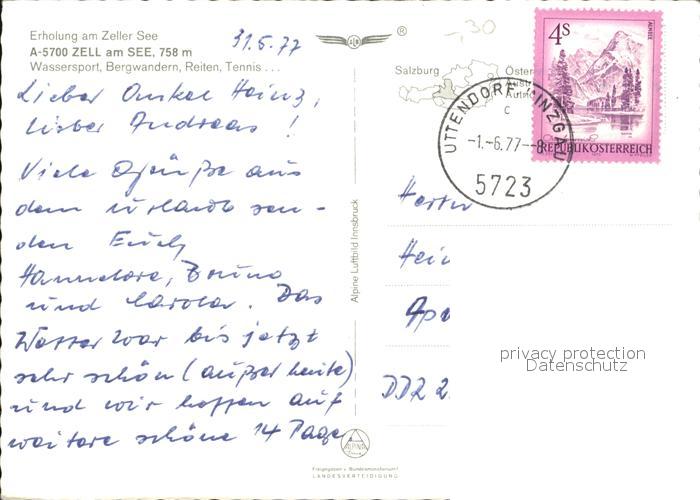 Erholung am Zeller See
A-5700 ZELL am SEE, 758 m
Wassersport, Bergwandern, Reiten, Tennis . . .
31.5.77
Lieber Onkel Heinz,
lieber Andreas !
Viele Grüße aus
dem Urlaub sen-
den Euch
Hannelore, Bruno
und Carola. Das
Wetter war bis jetzt
sehr schön (außer heute)
und wir hoffen auf
weitere schöne 14 Tage
Alpine Luftbild Innsbruck
ALPINE
Freigegeben v. Bundesministerium f.
LANDESVERTEIDIGUNG
®
-,30
Salzburg
Öster
4S
ALMSEE
REPUBLIK ÖSTERREICH
UTTENDORF PINZGAU
c
-1.-6.77--8
5723
Herrn
Hein
Apo
DDR 2
privacy protection
Datenschutz